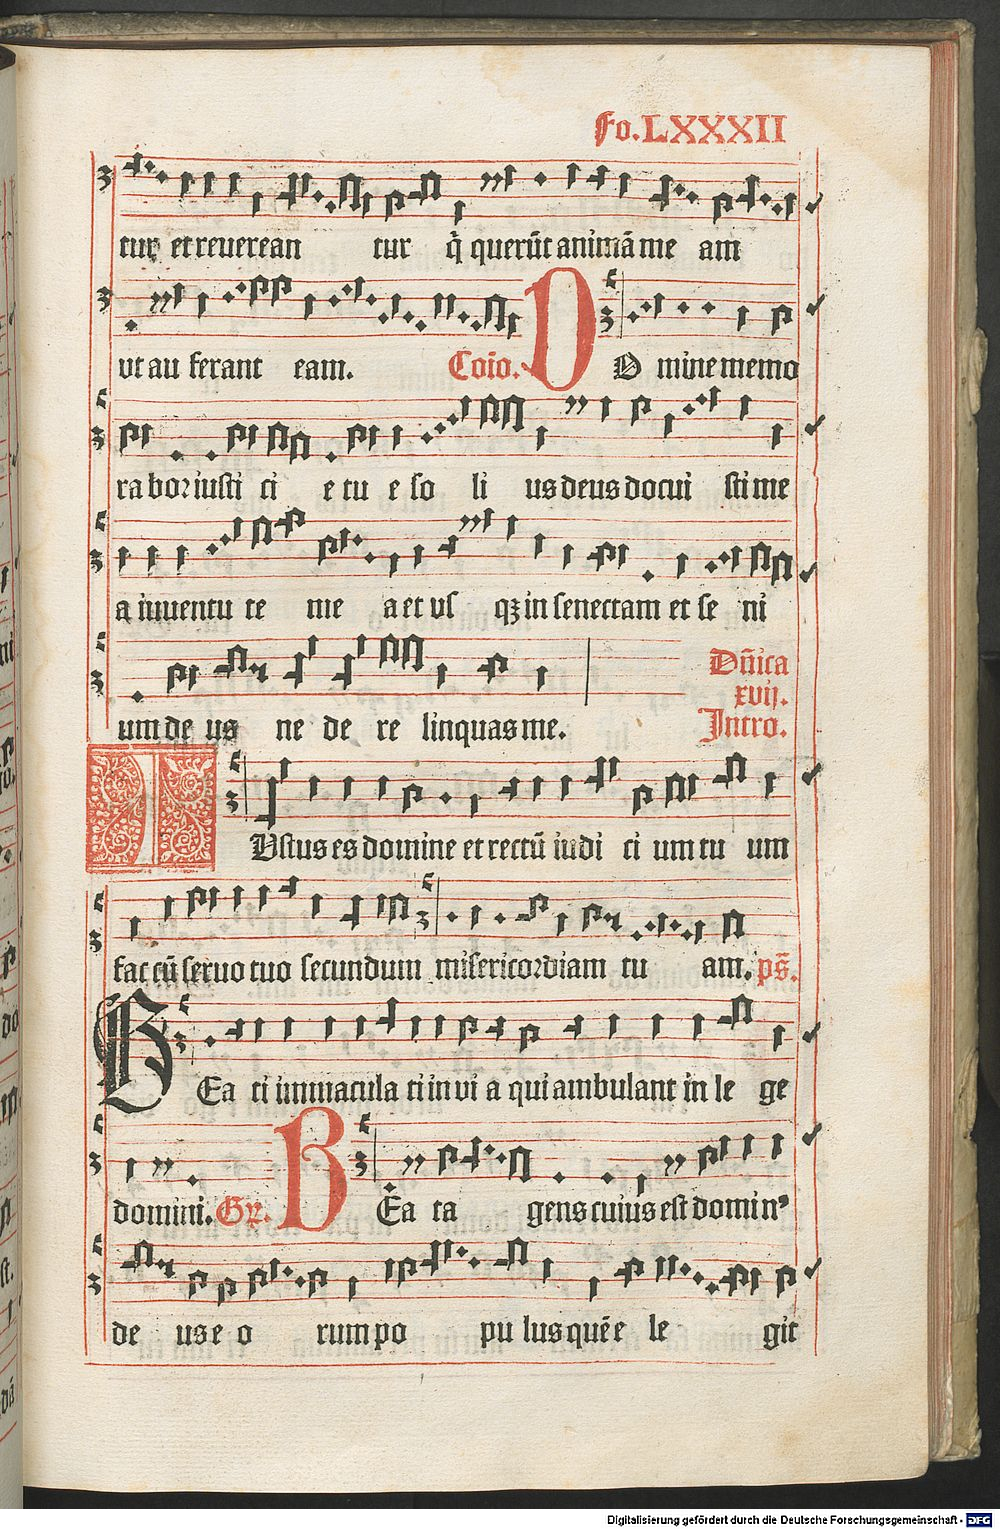 Fo. LXXXII
tur et reuerean tur q̄ querūt animā me am
vt au ferant eam. Coīo. D O mine memo
ra bor iusti ci e tu e so li us deus docui sti me
a iuuentu te me a et vs qȝ in senectam et se ni
um de us ne de re linquas me.
Dn̄ica
xvij.
Intro.
I Vstus es domine et rectū iudi ci um tu um
fac cū seruo tuo secundum misericordiam tu am. ps̄.
B Ea ti immacula ti in vi a qui ambulant in le ge
domini. Gr̄. B Ea ta gens cuius est domin⁹
de us e o rum po pu lus quē e le git
Digitalisierung gefördert durch die Deutsche Forschungsgemeinschaft - DFG